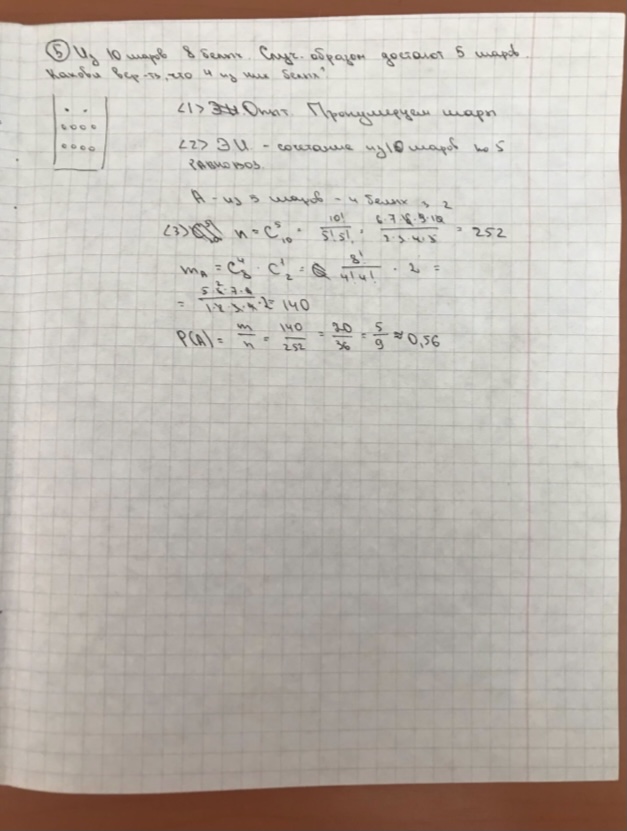 ⑤ Из 10 шаров 8 белых. Случ. образом достают 5 шаров.
Какова вер-ть, что 4 из них белых?
<1> Опыт. Пронумеруем шары
<2> Э И - сочетание из 10 шаров по 5
равновоз.
A - из 5 шаров - 4 белых
<3> n = C₁₀⁵ = 10!/(5!5!) = (6·7·8·9·10)/(2·3·4·5) = 252
m_A = C₈⁴ · C₂¹ = 8!/(4!4!) · 2 =
= (5·6·7·8)/(1·2·3·4) · 2 = 140
P(A) = m/n = 140/252 = 20/36 = 5/9 ≈ 0,56